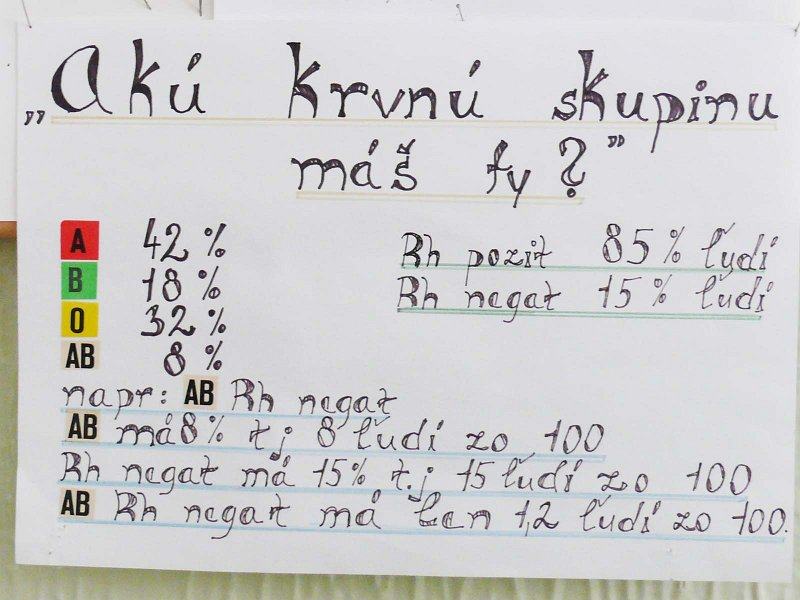 „Akú krvnú skupinu
máš ty?"
A 42%
B 18%
O 32%
AB 8%
Rh pozit 85% ľudí
Rh negat 15% ľudí
napr: AB Rh negat
AB má 8% t.j 8 ľudí zo 100
Rh negat má 15% t.j 15 ľudí zo 100
AB Rh negat má len 1,2 ľudí zo 100.